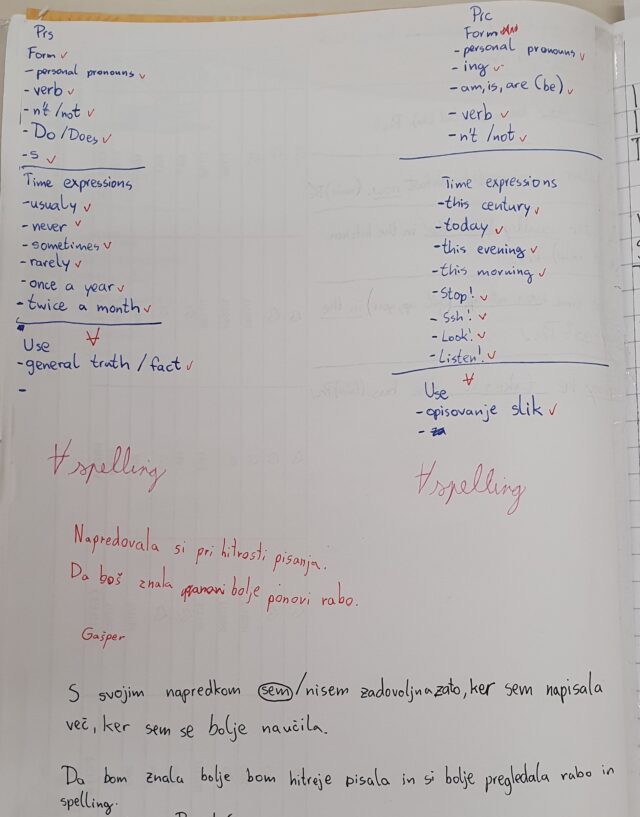 Prs
Form ✓
- personal pronouns ✓
- verb ✓
- n't /not ✓
- Do /Does ✓
- s ✓
Time expressions
- usualy ✓
- never ✓
- sometimes ✓
- rarely ✓
- once a year ✓
- twice a month ✓
Use ∀
- general truth / fact ✓
-
∀ spelling
Prc
Form
- personal pronouns ✓
- ing ✓
- am, is, are (be) ✓
- verb ✓
- n't /not ✓
Time expressions
- this century ✓
- today ✓
- this evening ✓
- this morning ✓
- Stop! ✓
- Ssh! ✓
- Look! ✓
- Listen! ✓
Use ∀
- opisovanje slik ✓
-
∀ spelling
Napredovala si pri hitrosti pisanja.
Da boš znala bolje ponovi rabo.
Gašper
S svojim napredkom sem/nisem zadovoljna zato, ker sem napisala
več, ker sem se bolje naučila.
Da bom znala bolje bom hitreje pisala in si bolje pregledala rabo in
spelling.